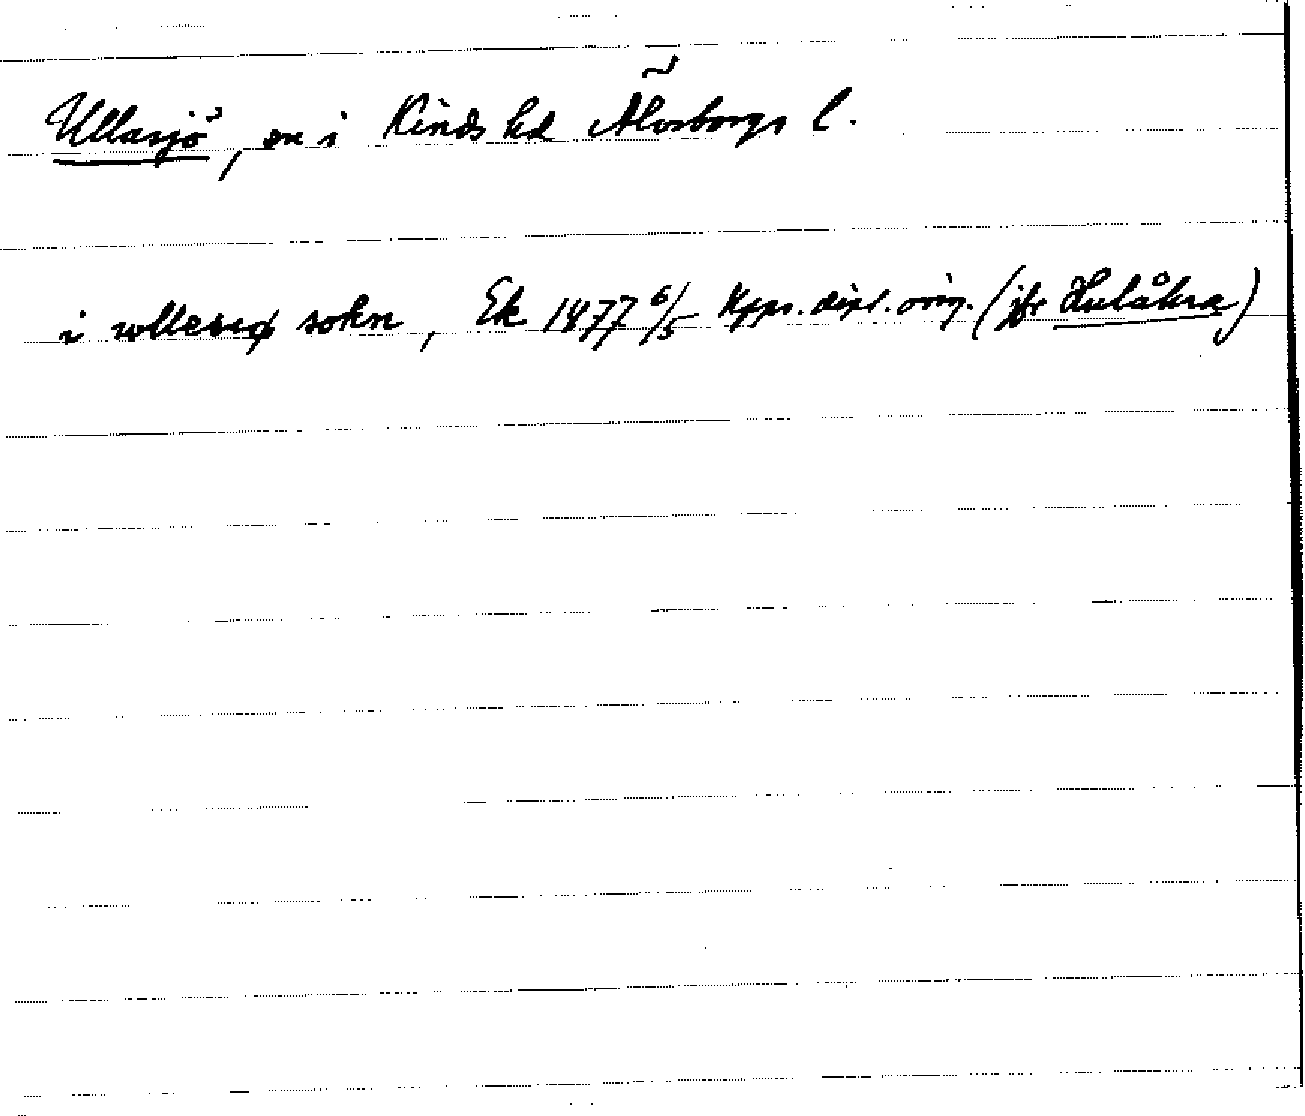 Ullasjö, sn i Kinds hd Älvsborgs l. ~
i wllesiø sokn, Ek 1477 6/5 Uppr. dipl. orig. (jfr Hulåkra)